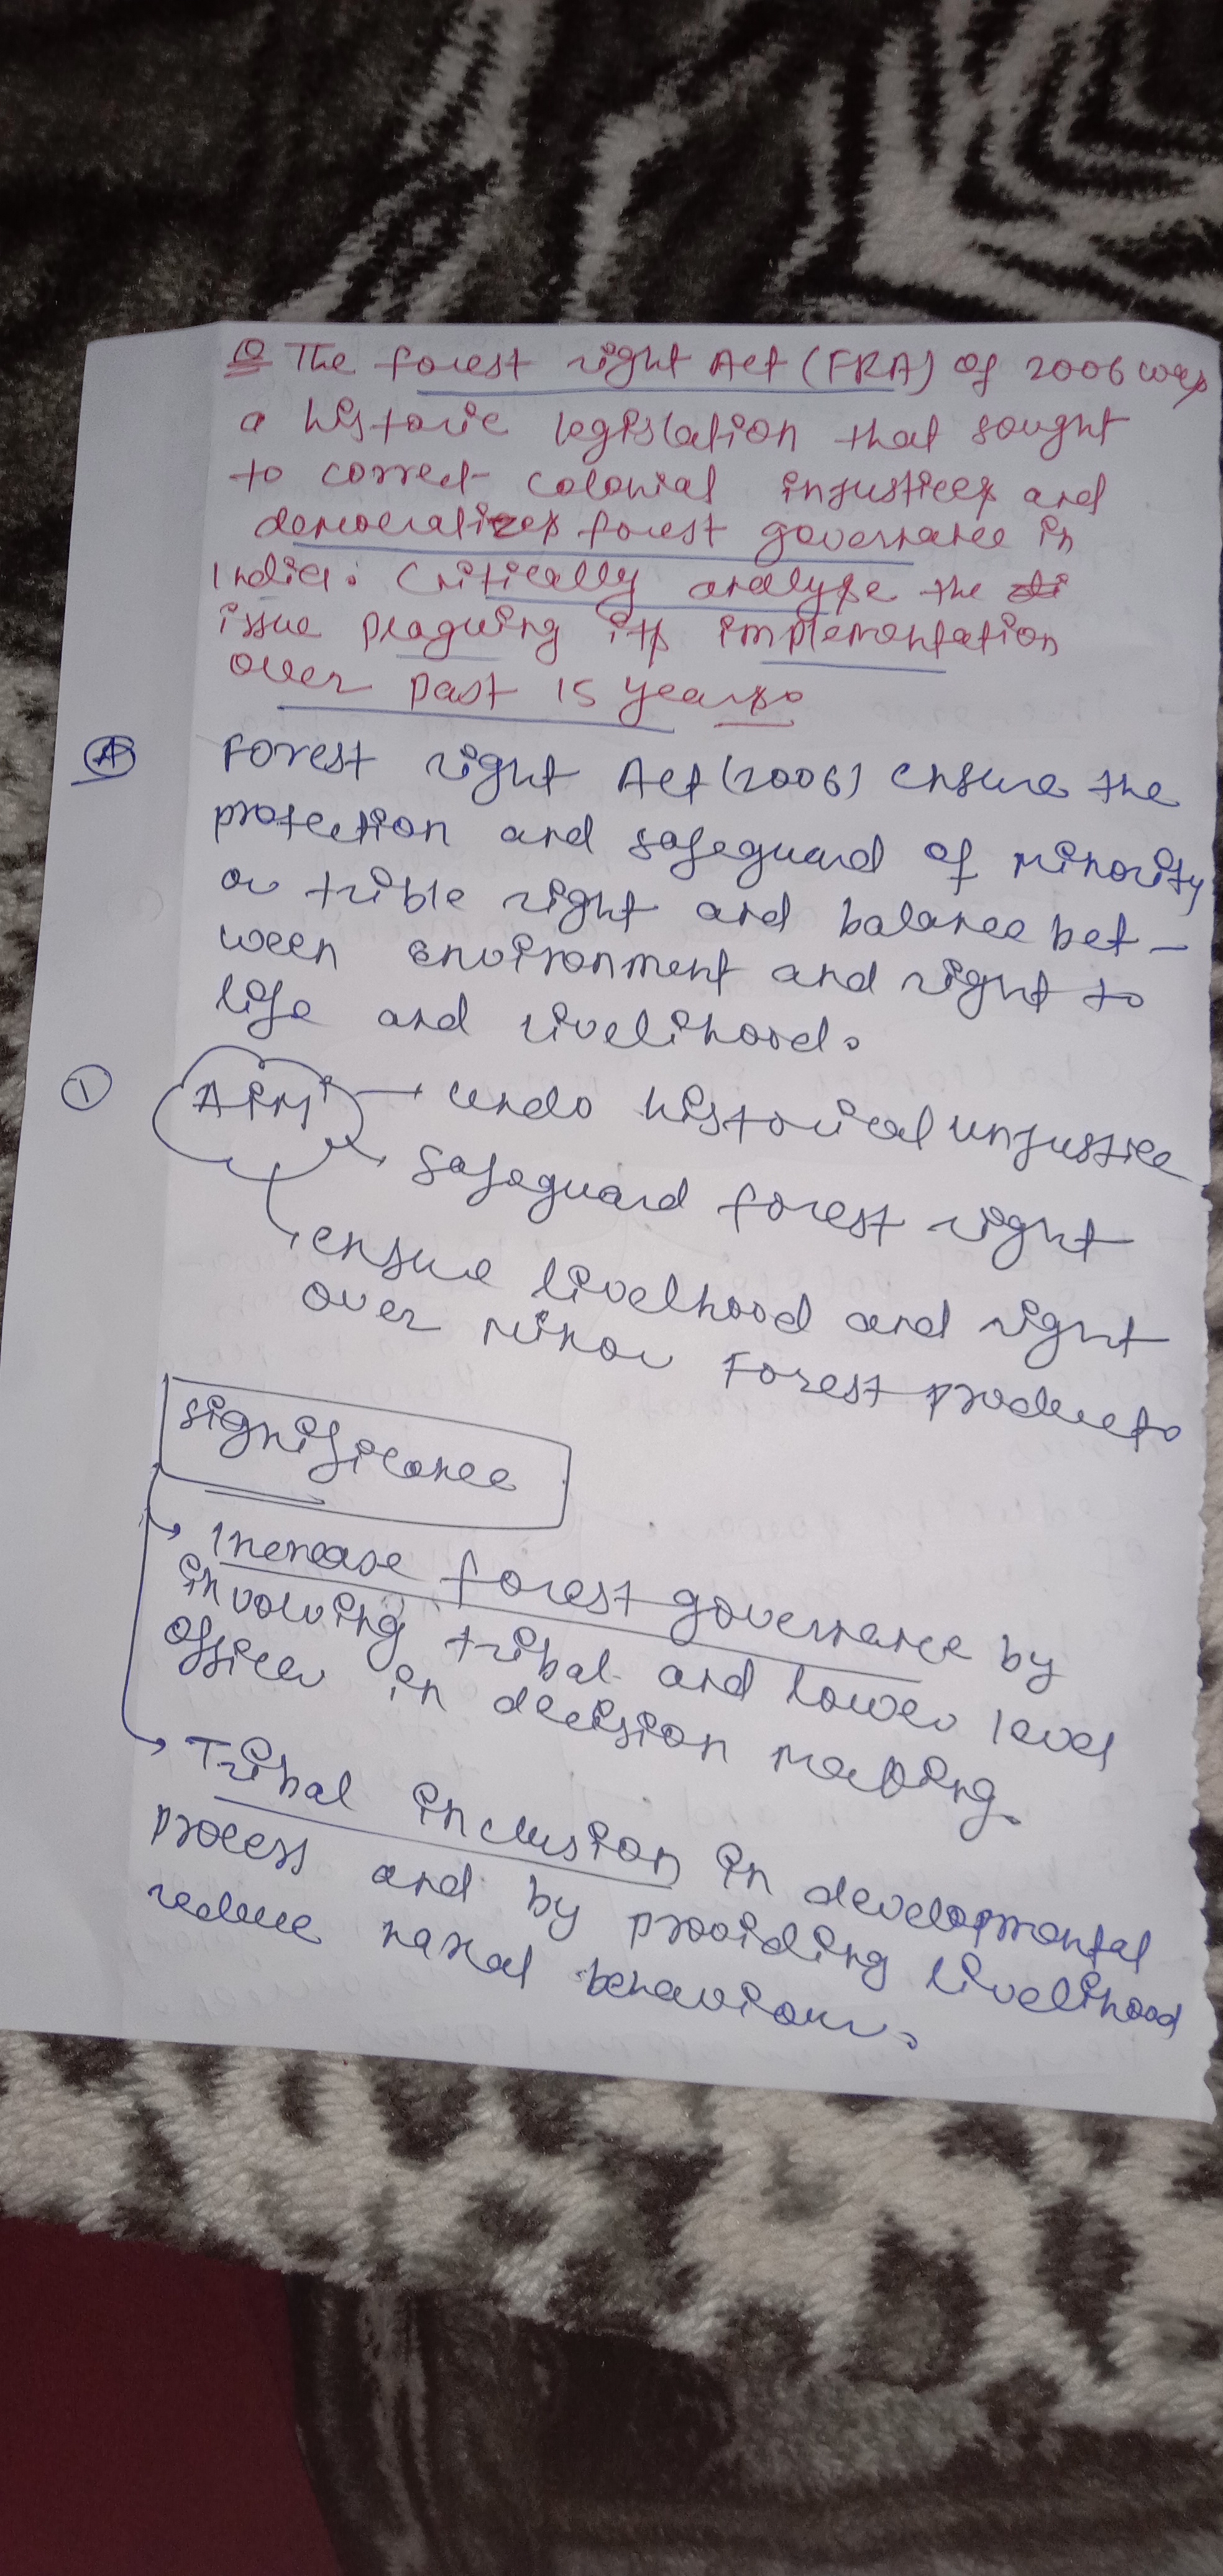 Q The forest right Act (FRA) of 2006 was
a historic legislation that sought
to correct colonial injustices and
democralizes forest governance in
India. Critically analyse the
issue plaguing its implementation
over past 15 years.
A Forest right Act (2006) ensure the
protection and safeguard of minority
or trible right and balance bet-
ween environment and right to
life and livelihood.
① AIM → undo historical unjustice
safeguard forest right
ensure livelhood and right
over minor Forest product.
significance
→ Increase forest governance by
involving tribal and lower level
officer in decision making.
→ Tribal inclusion in developmental
process and by providing livelihood
reduce naxal behaviour.